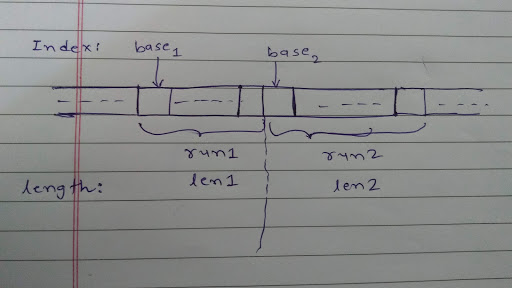 Index: base1 base2
run1 run2
length: len1 len2